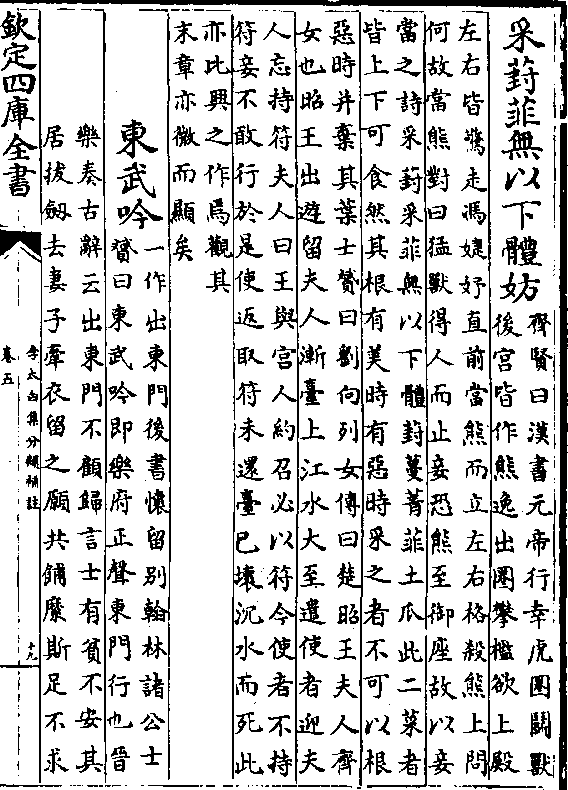 采葑菲無以下體妨
齊賢曰漢書元帝行幸虎圏鬭獸
後宫皆作熊逸出圏攀檻欲上殿
左右皆驚走馮婕妤直前當熊而立左右格殺熊上問
何故當熊對曰猛獸得人而止妾恐熊至御座故以妾
當之詩采葑采菲無以下體葑蔓菁菲土瓜此二菜者
皆上下可食然其根有美時有惡時采之者不可以根
惡時并棄其葉士贇曰劉向列女傳曰楚昭王夫人齊
女也昭王出遊留夫人漸臺上江水大至遣使者迎夫
人忘持符夫人曰王與宫人約召必以符今使者不持
符妾不敢行於是使返取符未還臺已壞沉水而死此
亦比興之作爲觀其
末章亦微而顯矣
東武吟
一作出東門後書懷留别翰林諸公士
贇曰東武吟即樂府正聲東門行也晉
樂奏古辭云出東門不顧歸言士有貧不安其
居拔劔去妻子牽衣留之願共餔糜斯足不求
欽定四庫全書
李太白集分類補註
卷五
十九